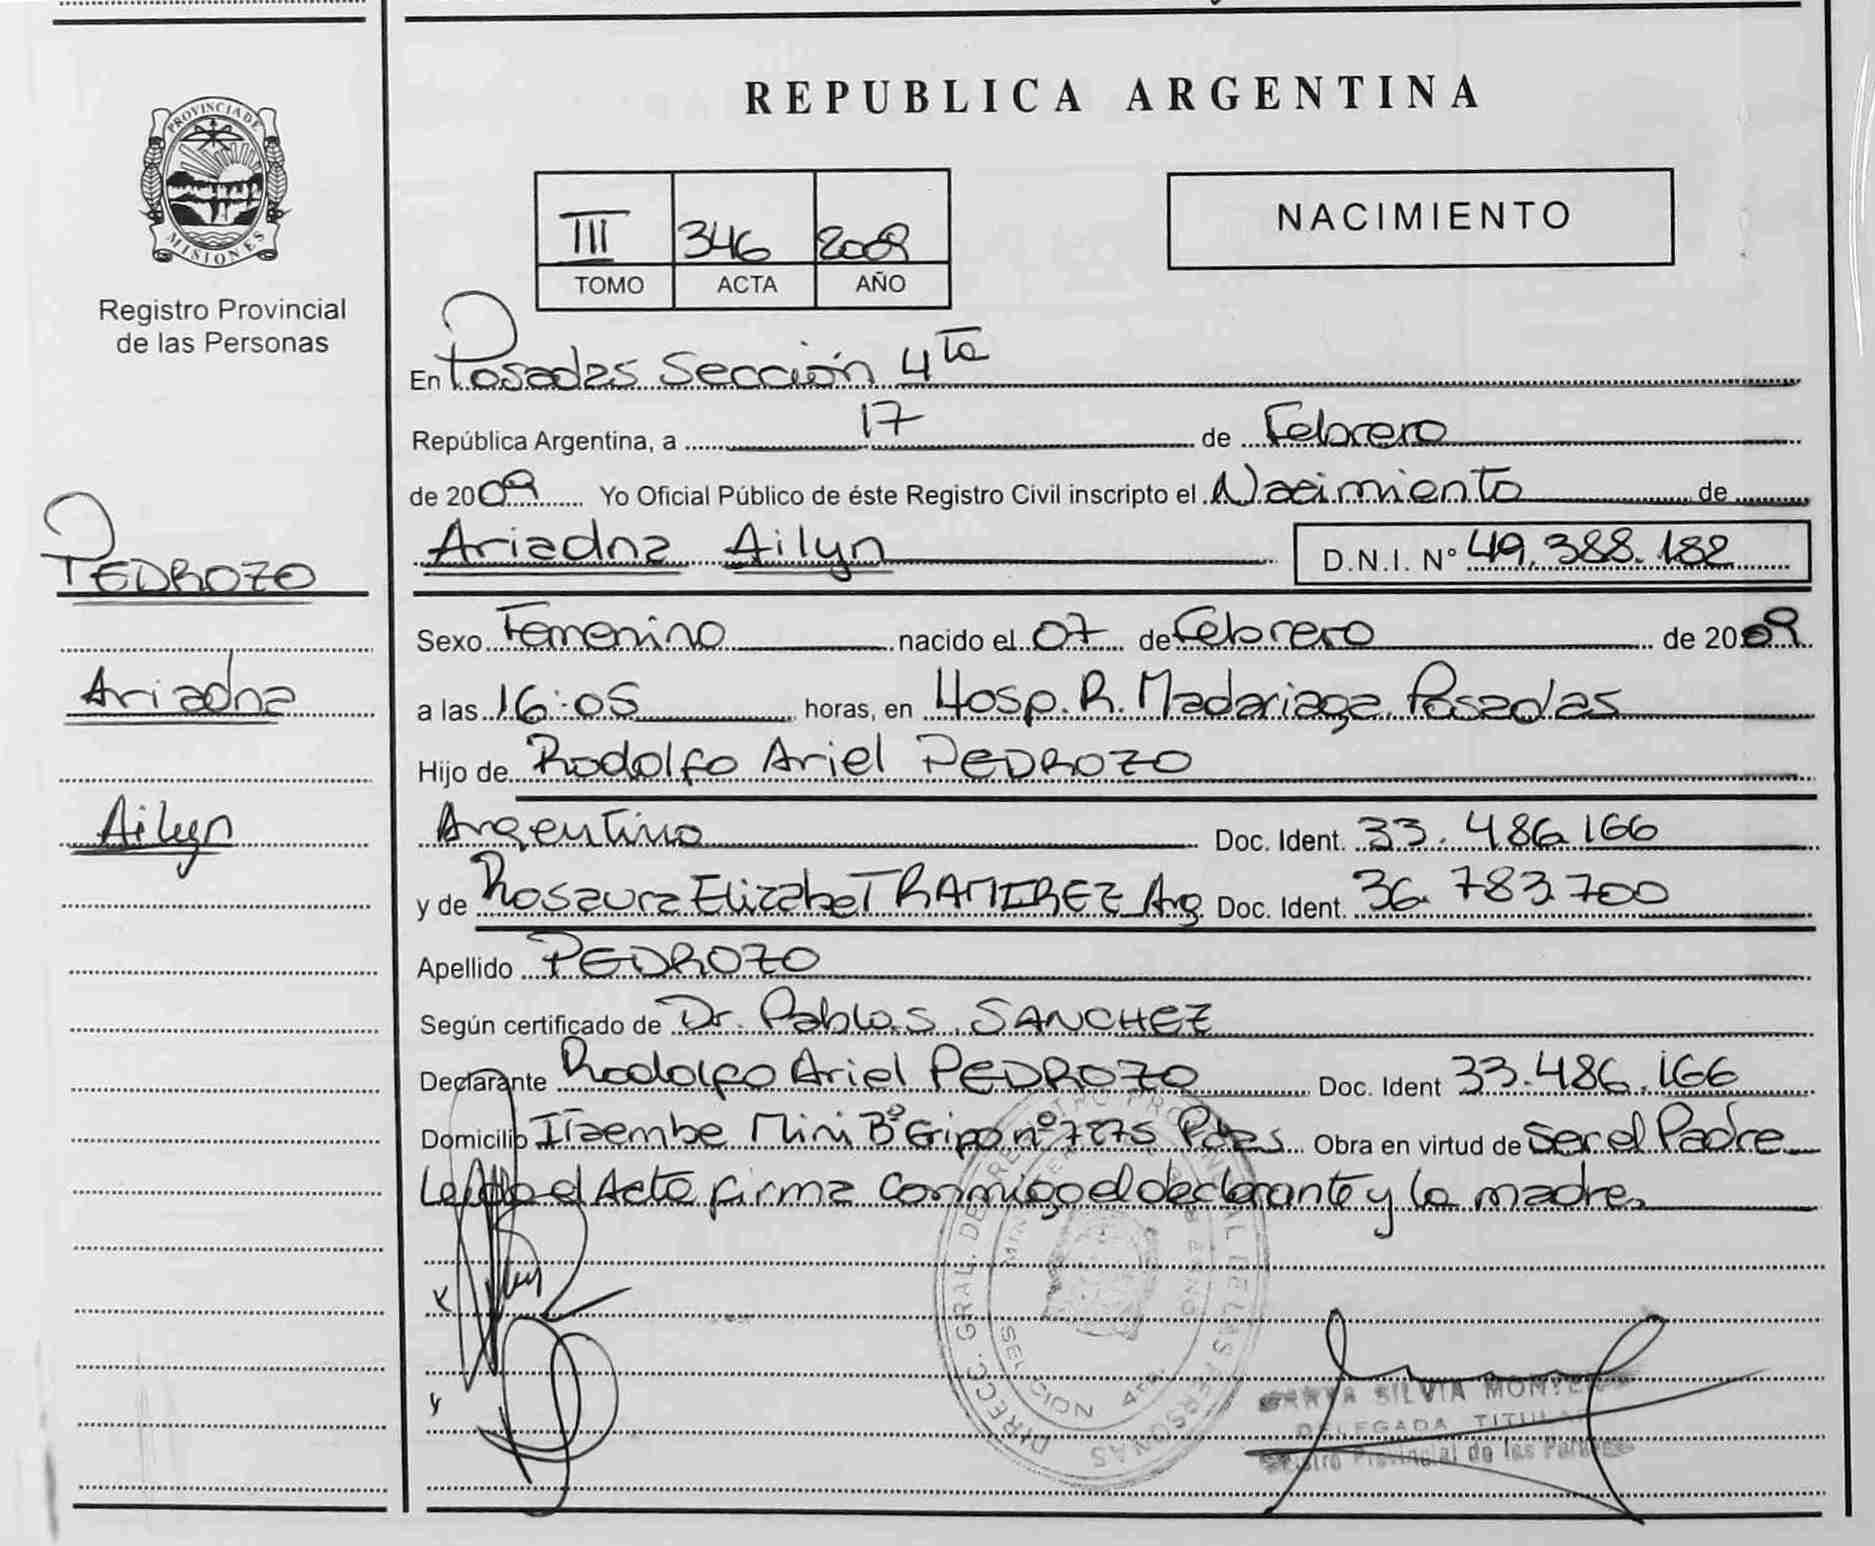 PROVINCIA DE
MISIONES
Registro Provincial
de las Personas
PEDROZO
Ariadna
Ailyn
REPUBLICA ARGENTINA
III 346 2009
TOMO ACTA AÑO
NACIMIENTO
En Posadas Sección 4ta
República Argentina, a 17 de Febrero
de 2009 Yo Oficial Público de éste Registro Civil inscripto el Nacimiento de
Ariadna Ailyn D.N.I. Nº 49.388.182
Sexo Femenino nacido el 07 de Febrero de 2009
a las 16:05 horas, en Hosp. R. Madariaga Posadas
Hijo de Rodolfo Ariel PEDROZO
Argentino Doc. Ident. 33.486.166
y de Rosaura Elizabet RAMIREZ Arg. Doc. Ident. 36.783.700
Apellido PEDROZO
Según certificado de Dr. Pablo S. SANCHEZ
Declarante Rodolfo Ariel PEDROZO Doc. Ident 33.486.166
Domicilio Itaembe Mini Bº nº 7875 Pdas Obra en virtud de ser el Padre
Leído el Acta firma conmigo el declarante y la madre.
DIRECC. GRAL. DE REGISTRO PROVINCIAL DE LAS PERSONAS
SILVIA
DELEGADA TITULAR
Registro Provincial de las Personas